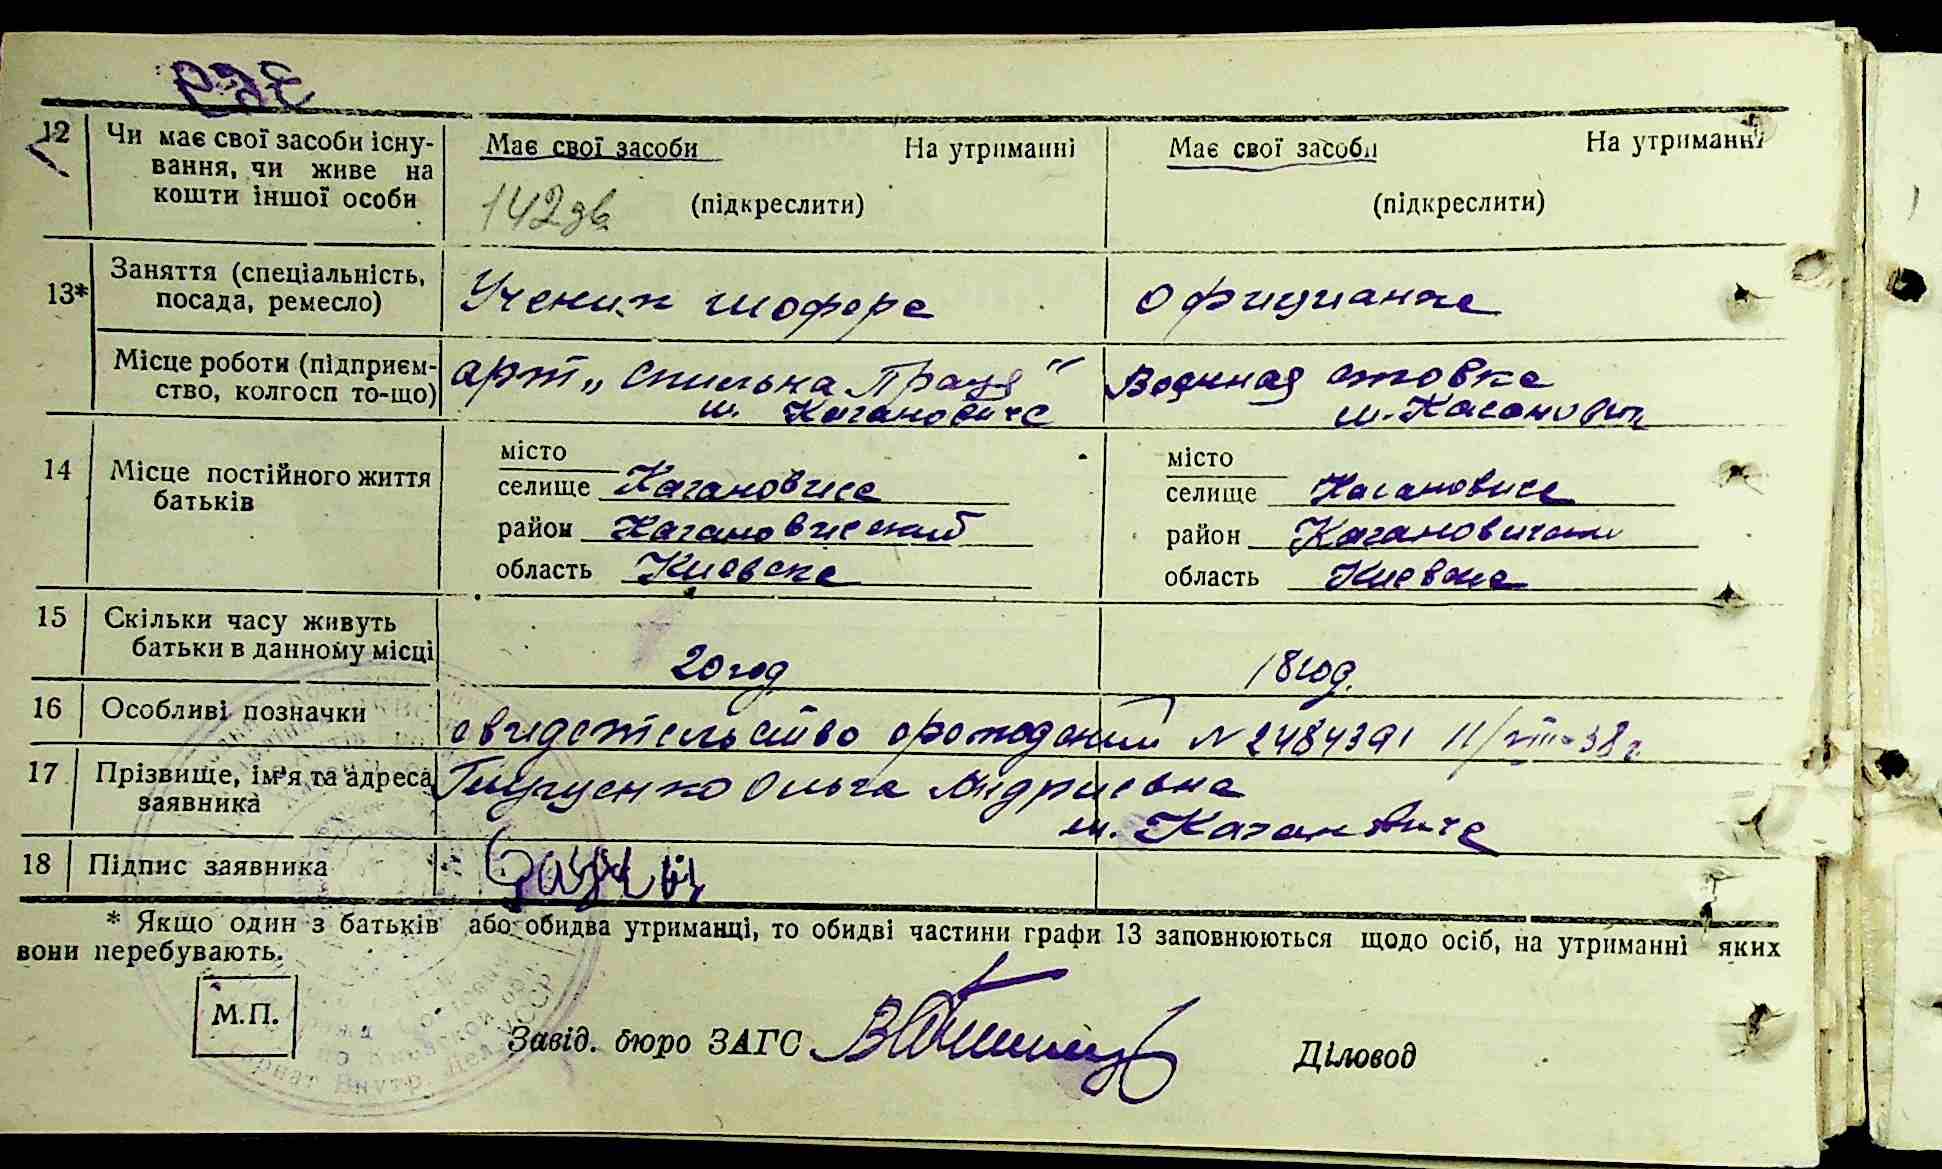 369
12 Чи має свої засоби існу-
вання, чи живе на
кошти іншої особи
Має свої засоби На утриманні
142
(підкреслити)
Має свої засоби На утриманні
(підкреслити)
13* Заняття (спеціальність,
посада, ремесло)
Ученик шофера
Официанка
Місце роботи (підприєм-
ство, колгосп то-що)
арт „Спильна Праця"
м. Кагановиче
Военная столовка
м. Каганович
14 Місце постійного життя
батьків
місто
селище Кагановиче
район Кагановический
область Киевска
місто
селище Кагановиче
район
область Киевска
15 Скільки часу живуть
батьки в данному місці
20 год
18 год.
16 Особливі позначки
свидетельство орождении N 2484391 11/VIII-38 г.
17 Прізвище, ім'я та адреса
заявника
Ольга Андриевна
м. Кагановиче
18 Підпис заявника
* Якщо один з батьків або обидва утриманці, то обидві частини графи 13 заповнюються щодо осіб, на утриманні яких
вони перебувають.
М.П.
Завід. бюро ЗАГС
Діловод